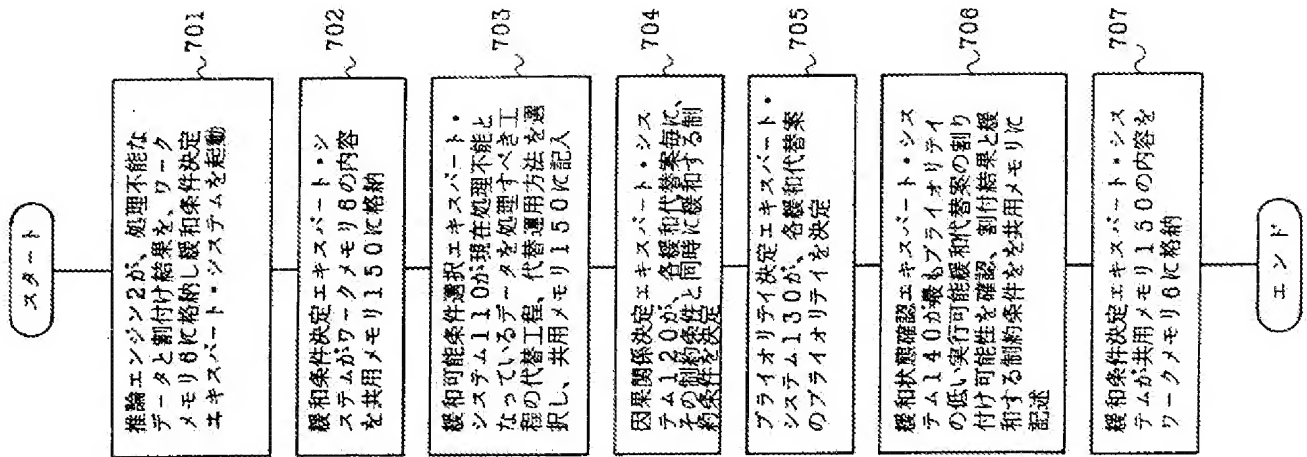 スタート
推論エンジン2が、処理不能な
データと割付け結果を、ワーク
メモリ6に格納し緩和条件決定
エキスパート・システムを起動
701
緩和条件決定エキスパート・シ
ステムがワークメモリ6の内容
を共用メモリ150に格納
702
緩和可能条件選択エキスパート・
システム110が現在処理不能と
なっているデータを処理すべき工
程の代替工程、代替運用方法を選
択し、共用メモリ150に記入
703
因果関係決定エキスパート・シス
テム120が、各緩和代替案毎に、
その制約条件と同時に緩和する制
約条件を決定
704
プライオリティ決定エキスパート・
システム130が、各緩和代替案
のプライオリティを決定
705
緩和状態確認エキスパート・シス
テム140が最もプライオリティ
の低い実行可能緩和代替案の割り
付け可能性を確認、割付結果と緩
和する制約条件をを共用メモリに
記述
706
緩和条件決定エキスパート・シス
テムが共用メモリ150の内容を
ワークメモリ6に格納
707
エンド